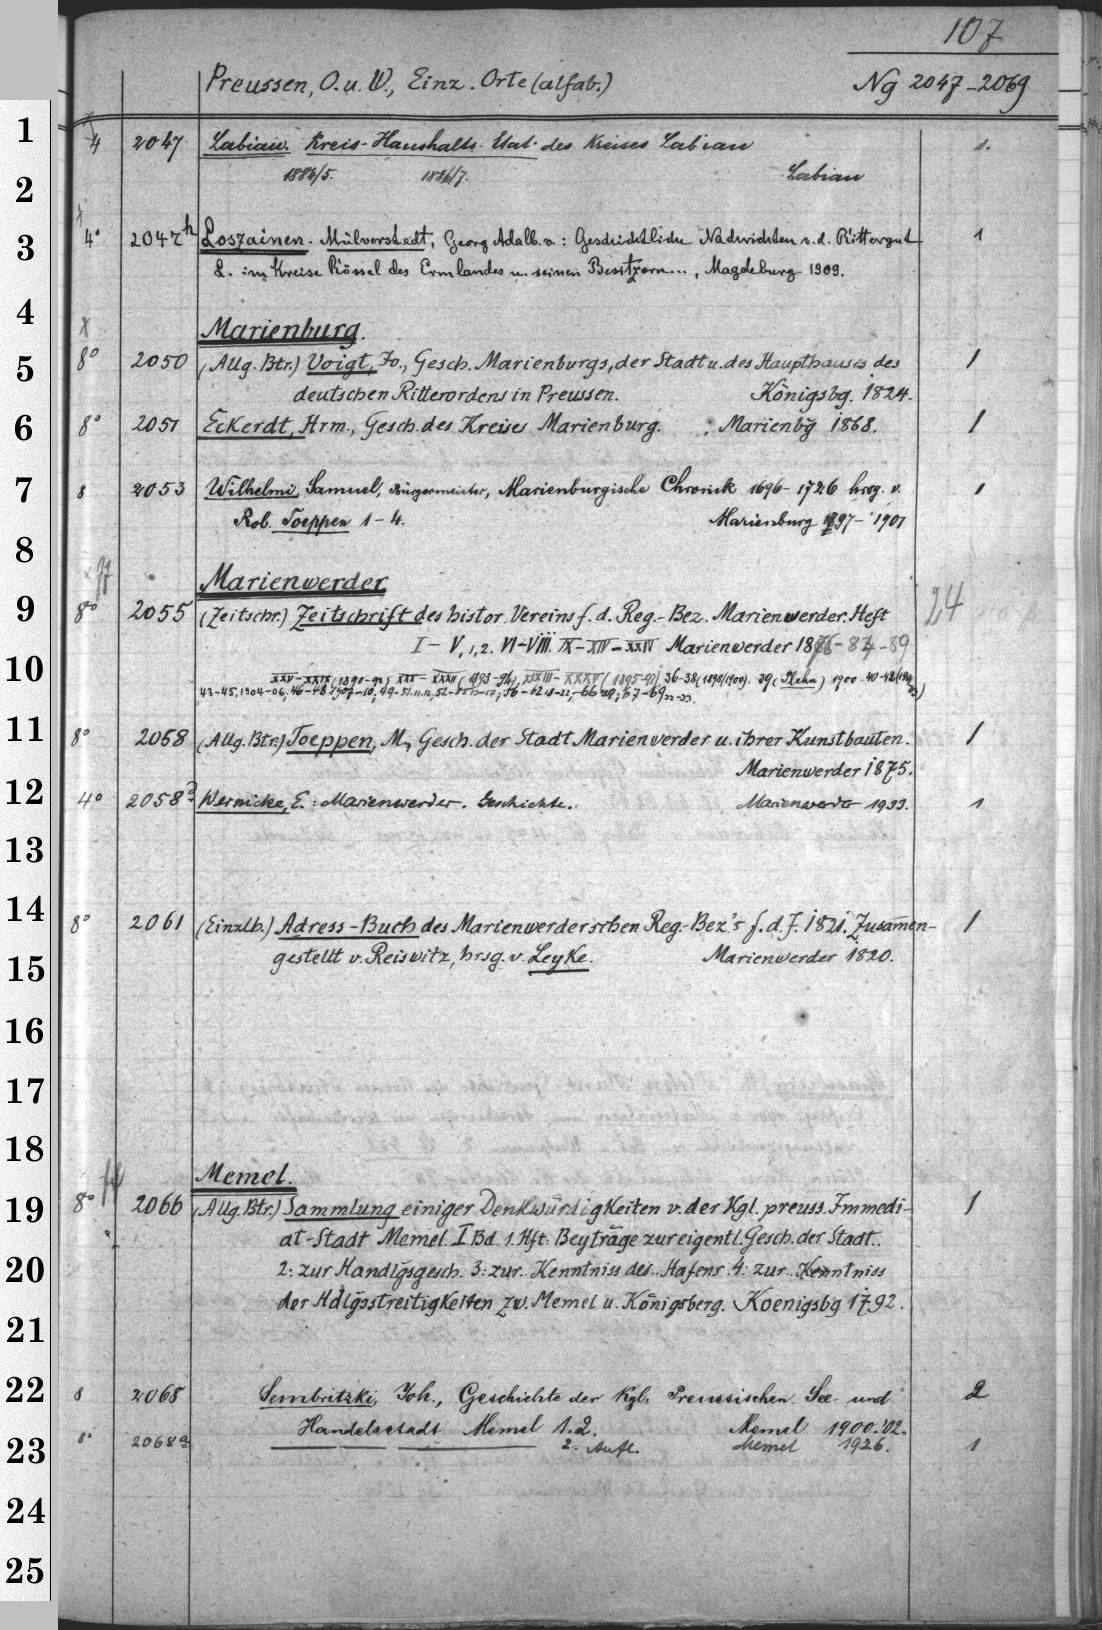 107
Preussen, O. u. W., Einz. Orte (alfab.) Ng 2047-2069
1
4 2047 Labiau. Kreis-Haushalts-Etat des Kreises Labiau 1.
1884/5. 1886/7. Labiau
2
3
4° 2047h Loszainen. Mülverstedt, Georg Adalb. v.: Geschichtliche Nachrichten v. d. Rittergut 1
L. im Kreise Rössel des Ermlandes u. seinen Besitzern..., Magdeburg 1909.
4
Marienburg.
5
8° 2050 (Allg. Btr.) Voigt, Jo., Gesch. Marienburgs, der Stadt u. des Haupthauses des 1
deutschen Ritterordens in Preussen. Königsbg. 1824.
6
8° 2051 Eckerdt, Hrm., Gesch. des Kreises Marienburg. Marienbg 1868. 1
7
8 2053 Wilhelmi, Samuel, Bürgermeister, Marienburgische Chronik 1696-1726 hrsg. v. 1
Rob. Toeppen 1-4. Marienburg 1897-1901
8
Marienwerder
9
8° 2055 (Zeitschr.) Zeitschrift des histor. Vereins f. d. Reg.-Bez. Marienwerder. Heft 24
I-V, 1, 2. VI-VIII. IX-XIV-XXIV Marienwerder 1876-87-89
10
XXV-XXIX (1890-92) XXX-XXXII (1893-94), XXXIII-XXXV (1895-97), 36-38 (1898/1900). 39 (Plehn) 1900. 40-42
43-45, 1904-06, 46-48 1907-10, 49-51, 56-62, -66, 67-69
11
8° 2058 (Allg. Btr.) Toeppen, M., Gesch. der Stadt Marienwerder u. ihrer Kunstbauten. 1
Marienwerder 1875.
12
4° 2058a Wernicke, E.: Marienwerder. Geschichte. Marienwerder 1933. 1
13
14
8° 2061 (Einzlb.) Adress-Buch des Marienwerderschen Reg.-Bez's f. d. J. 1821. Zusam̄en- 1
gestellt v. Reiswitz, hrsg. v. Leyke. Marienwerder 1820.
15
16
17
18
Memel.
19
8° 2066 (Allg. Btr.) Sammlung einiger Denkwürdigkeiten v. der Kgl. preuss. Immedi- 1
at-Stadt Memel. I Bd. 1. Hft: Beyträge zur eigentl. Gesch. der Stadt.
20
2: zur Handlḡsgesch. 3: zur Kenntniss des Hafens 4: zur Kenntniss
der Hdlḡsstreitigkeiten zw. Memel u. Königsberg. Koenigsbg 1792.
21
22
8 2068 Sembritzki, Joh., Geschichte der Kgl. Preussischen See- und 2
Handelsstadt Memel 1.2. Memel 1900.'02.
23
8° 2068a 2. Aufl. Memel 1926. 1
24
25